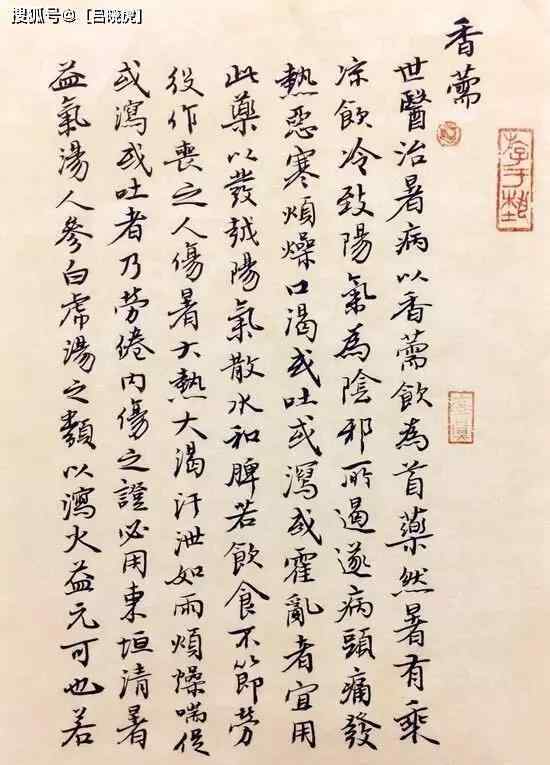 搜狐号@【吕晓虎】
香薷
世醫治暑病以香薷飲為首藥然暑有乘
凉飲冷致陽氣為陰邪所遏遂病頭痛發
熱惡寒煩燥口渴或吐或瀉或霍亂者宜用
此藥以發越陽氣散水和脾若飲食不節勞
役作喪之人傷暑大熱大渴汗泄如雨煩燥喘促
或瀉或吐者乃勞倦內傷之證必用東垣清暑
益氣湯人參白虎湯之類以瀉火益元可也若